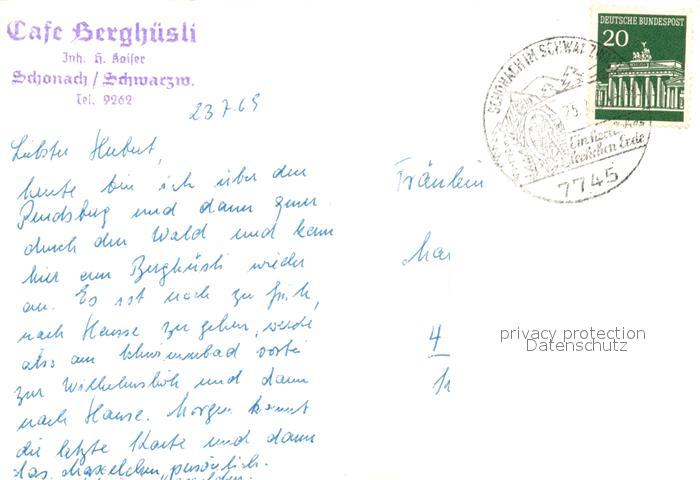 Cafe Berghüsli
Inh. H. Kaiser
Schonach / Schwarzw.
Tel. 9262
23.7.69
heute bin ich über den
und dann quer
durch den Wald und kam
hier am Berghüsli wieder
an. Es ist noch zu früh,
nach Hause zu gehen, werde
also am Schwimmbad vorbei
zur Wilhelmshöh und dann
nach Hause. Morgen kommt
die letzte Karte und dann
das persönlich.
Fräulein
4
DEUTSCHE BUNDESPOST
20
SCHONACH IM SCHWARZW
Ein Herrli
Erde
7745
privacy protection
Datenschutz